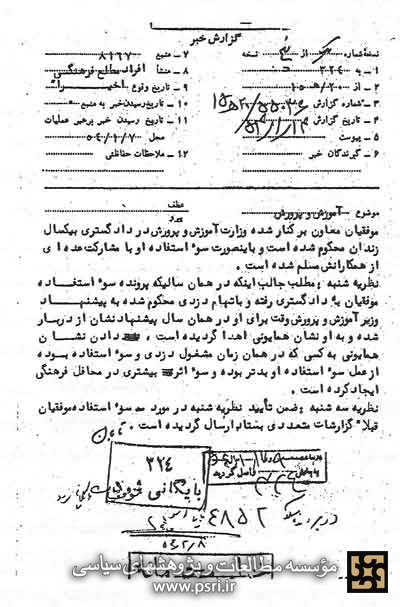 گزارش خبر
نسخه شماره از نسخه
۱ - به ۳۲۴
۲ - از ۲۰ / ه ۱۰
۳ - شماره گزارش
۴ - تاریخ گزارش
۵ - پیوست
۶ - گیرندگان خبر
۷ - منبع ۸۱۶۷
۸ - منشأ افراد مطلع فرهنگی
۹ - تاریخ وقوع اخیرا"
۱۰ - تاریخ رسیدن خبر به منبع
۱۱ - تاریخ رسیدن خبر برهبر عملیات
محل ۵۴/۱/۷
۱۲ - ملاحظات حفاظتی
موضوع آموزش و پرورش
عطف
پیرو
موفقیان معاون بر کنار شده وزارت آموزش و پرورش در دادگستری بیکسال
زندان محکوم شده است و باینصورت سوء استفاده او با مشارکت عده ای
از همکارانش مسلم شده است .
نظریه شنبه : مطلب جالب اینکه در همان سالیکه پرونده سوء استفاده
موفقیان به دادگستری رفته و باتهام دزدی محکوم شده به پیشنهاد
وزیر آموزش و پرورش وقت برای او در همان سال پیشنهاد نشان از دربار
شده و به او نشان همایونی اهدا گردیده است ، دادن نشان
همایونی به کسی که در همان زمان مشغول دزدی و سوء استفاده بوده
از عمل سوء استفاده او بدتر بوده و سوء اثر بیشتری در محافل فرهنگی
ایجاد کرده است .
نظریه سه شنبه : ضمن تأیید نظریه شنبه در مورد سوء استفاده موفقیان
قبلا" گزارشات متعددی بستاد ارسال گردیده است .
۳۲۴
بایگانی شود
۴۸۵۲
مؤسسه مطالعات و پژوهشهای سیاسی
www.psri.ir